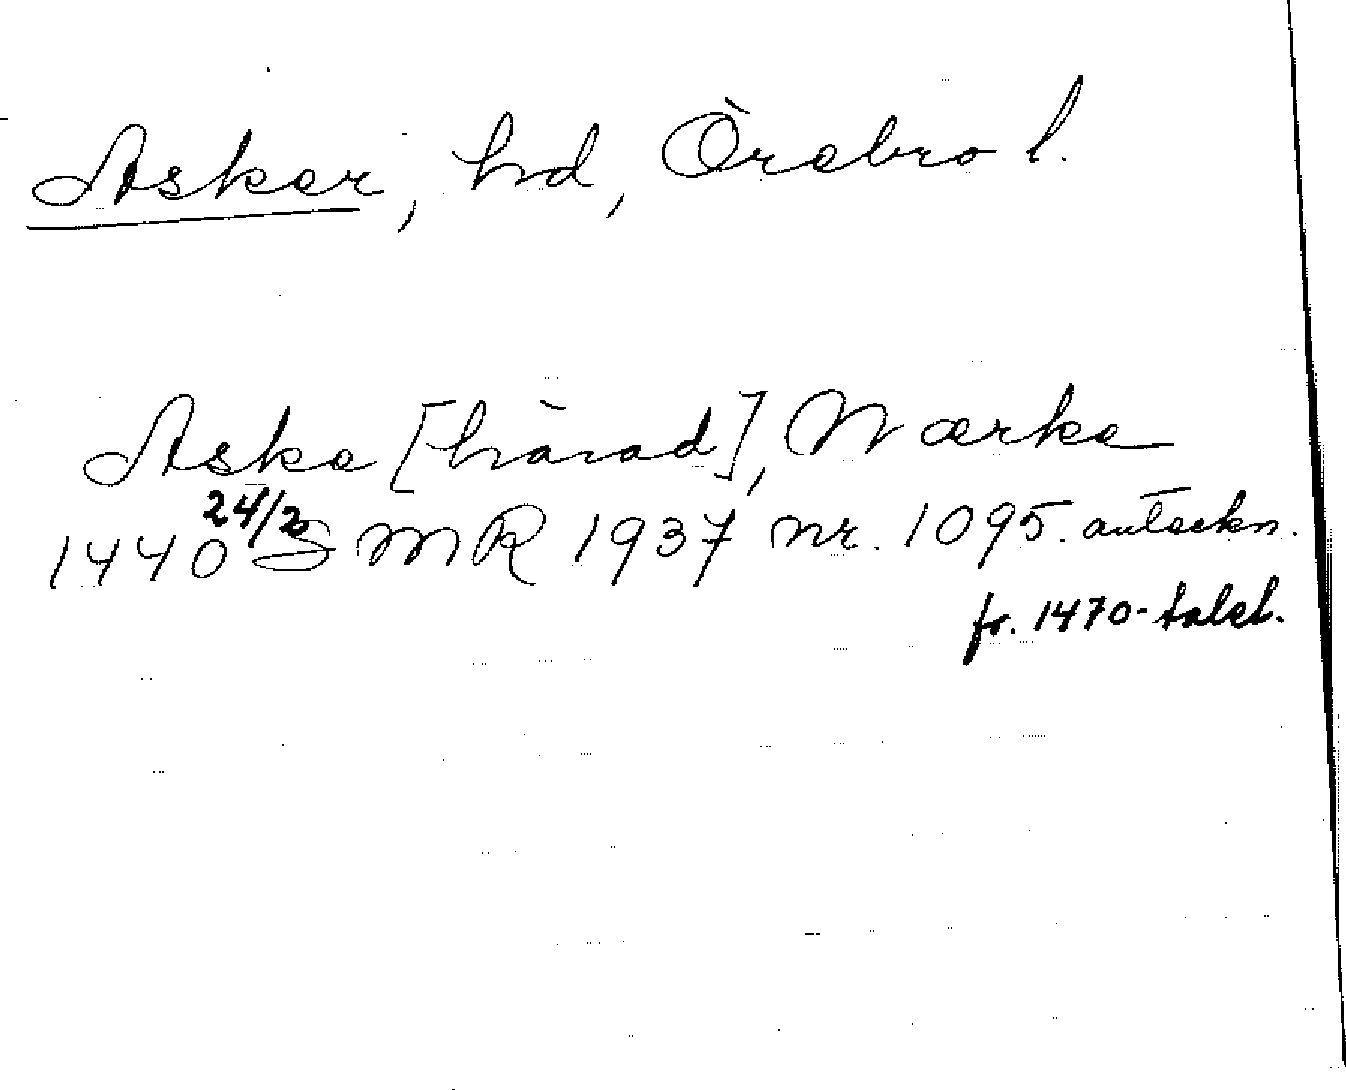 Asker, hd, Örebro l.
Aska [härad], Nærke
1440 24/2 SMR 1937 nr. 1095. anteckn.
fr. 1470-talet.